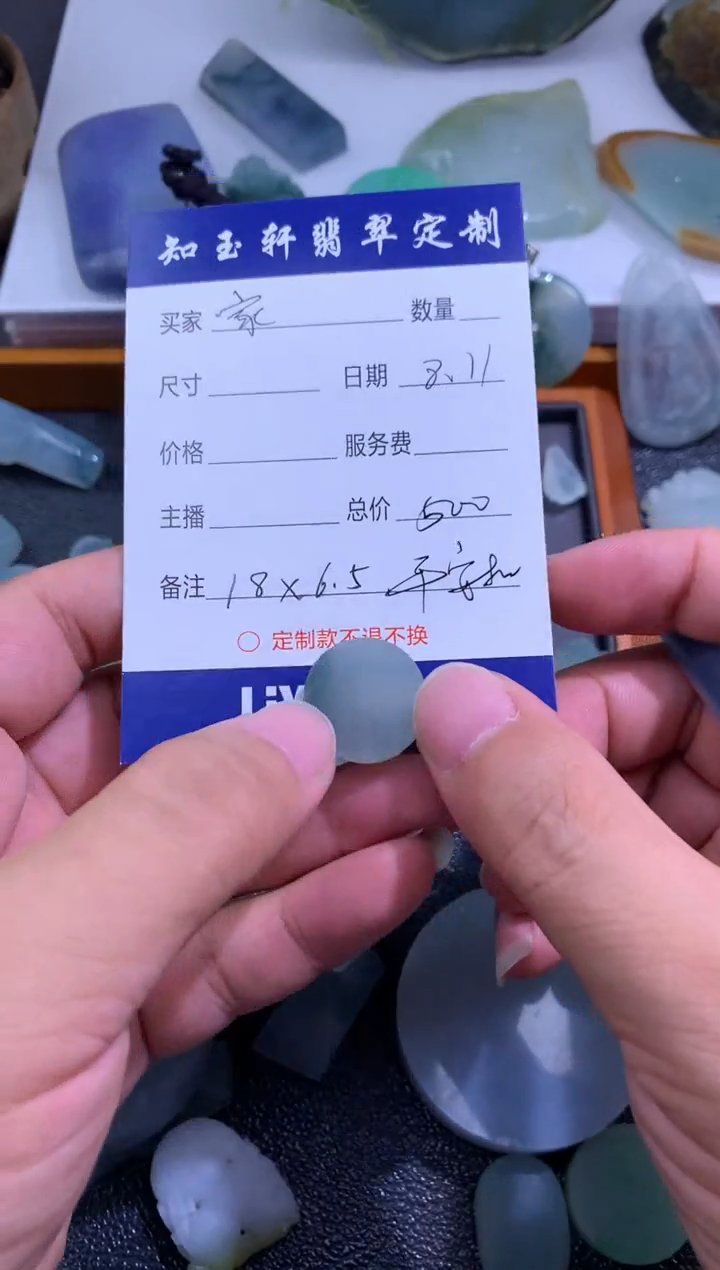 知玉轩翡翠定制
买家 家 数量
尺寸 日期 3.11
价格 服务费
主播 总价 600
备注 18×6.5 平安扣
○ 定制款不退不换
LiV